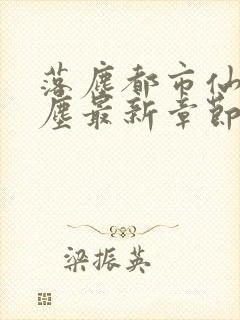 落塵都市仙
塵最新章節
梁振英